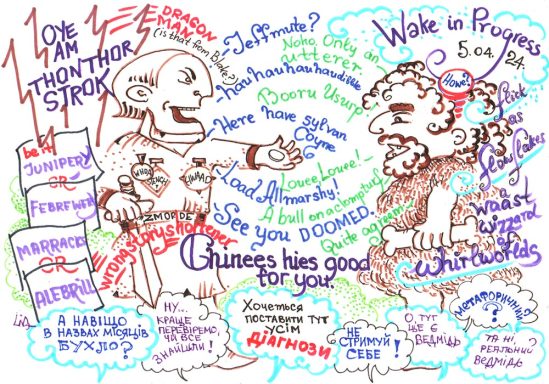 OYE
AM
THONTHOR
STROK
DRAGON
MAN
(is that from
Blake?)
-Jeffmute?
Noho. Only an
utterer
-hauhauhauhaudibble
Booru Usurp!
-Here have sylvan
Coyne
6
Louee, Louee!-
-Load Allmarshy!
A bull on a clompturf
-See you DOOMED.
Quite agreem!
Wake in Progress
5.04. 24.
Howe?
flick
as
flowflakes
a
waast
wizzard
of
whirlworlds
be it
JUNIPERY
OR
FEBREWERY
MARRACKS
OR
ALEBRILL
ZMORDE
wrongstoryshortener
Guinees hies good
for you.
А НАВІЩО
В НАЗВАХ МІСЯЦІВ
БУХЛО?
НУ...
КРАЩЕ
ПЕРЕВІРЄМО,
ЧИ ВСЕ
ЗНАЙШЛИ!
Хочеться
поставити тут
усім
ДІАГНОЗИ
НЕ
СТРИМУЙ
СЕБЕ!
О, ТУТ
ЩЕ Є
ВЕДМІДЬ
МЕТАФОРИЧНИЙ?
ТА НІ..
РЕАЛЬНИЙ
ВЕДМІДЬ